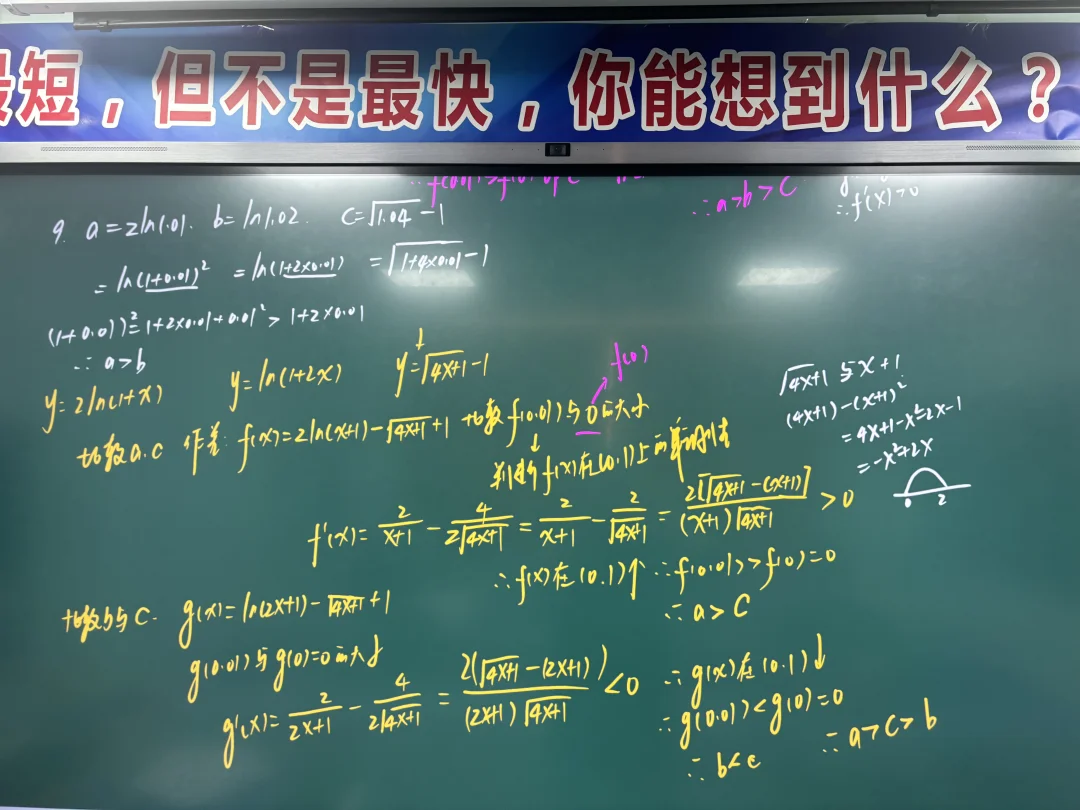 短，但不是最快，你能想到什么？
∴a>b>c
∴f'(x)>0
9. a=2ln1.01. b=ln1.02. c=√1.04-1
=ln(1+0.01)² =ln(1+2×0.01) =√1+4×0.01-1
(1+0.01)²=1+2×0.01+0.01²>1+2×0.01
∴a>b
y=2ln(1+x) y=ln(1+2x) y=√4x+1-1
f(0)
比较a.c 作差: f(x)=2ln(x+1)-√4x+1+1 比较f(0.01)与0的大小
↓
判断f(x)在(0.1)上的单调性
√4x+1 与x+1
(4x+1)-(x+1)²
=4x+1-x²-2x-1
=-x²+2x
0 2
f'(x)=2/(x+1)-4/(2√4x+1)=2/(x+1)-2/√4x+1=2[√4x+1-(x+1)]/((x+1)√4x+1)>0
∴f(x)在(0.1)↑ ∴f(0.01)>f(0)=0
∴a>c
比较b与c. g(x)=ln(2x+1)-√4x+1+1
g(0.01)与g(0)=0的大小
g'(x)=2/(2x+1)-4/(2√4x+1)=2(√4x+1-(2x+1))/((2x+1)√4x+1)<0
∴g(x)在(0.1)↓
∴g(0.01)<g(0)=0
∴b<c
∴a>c>b